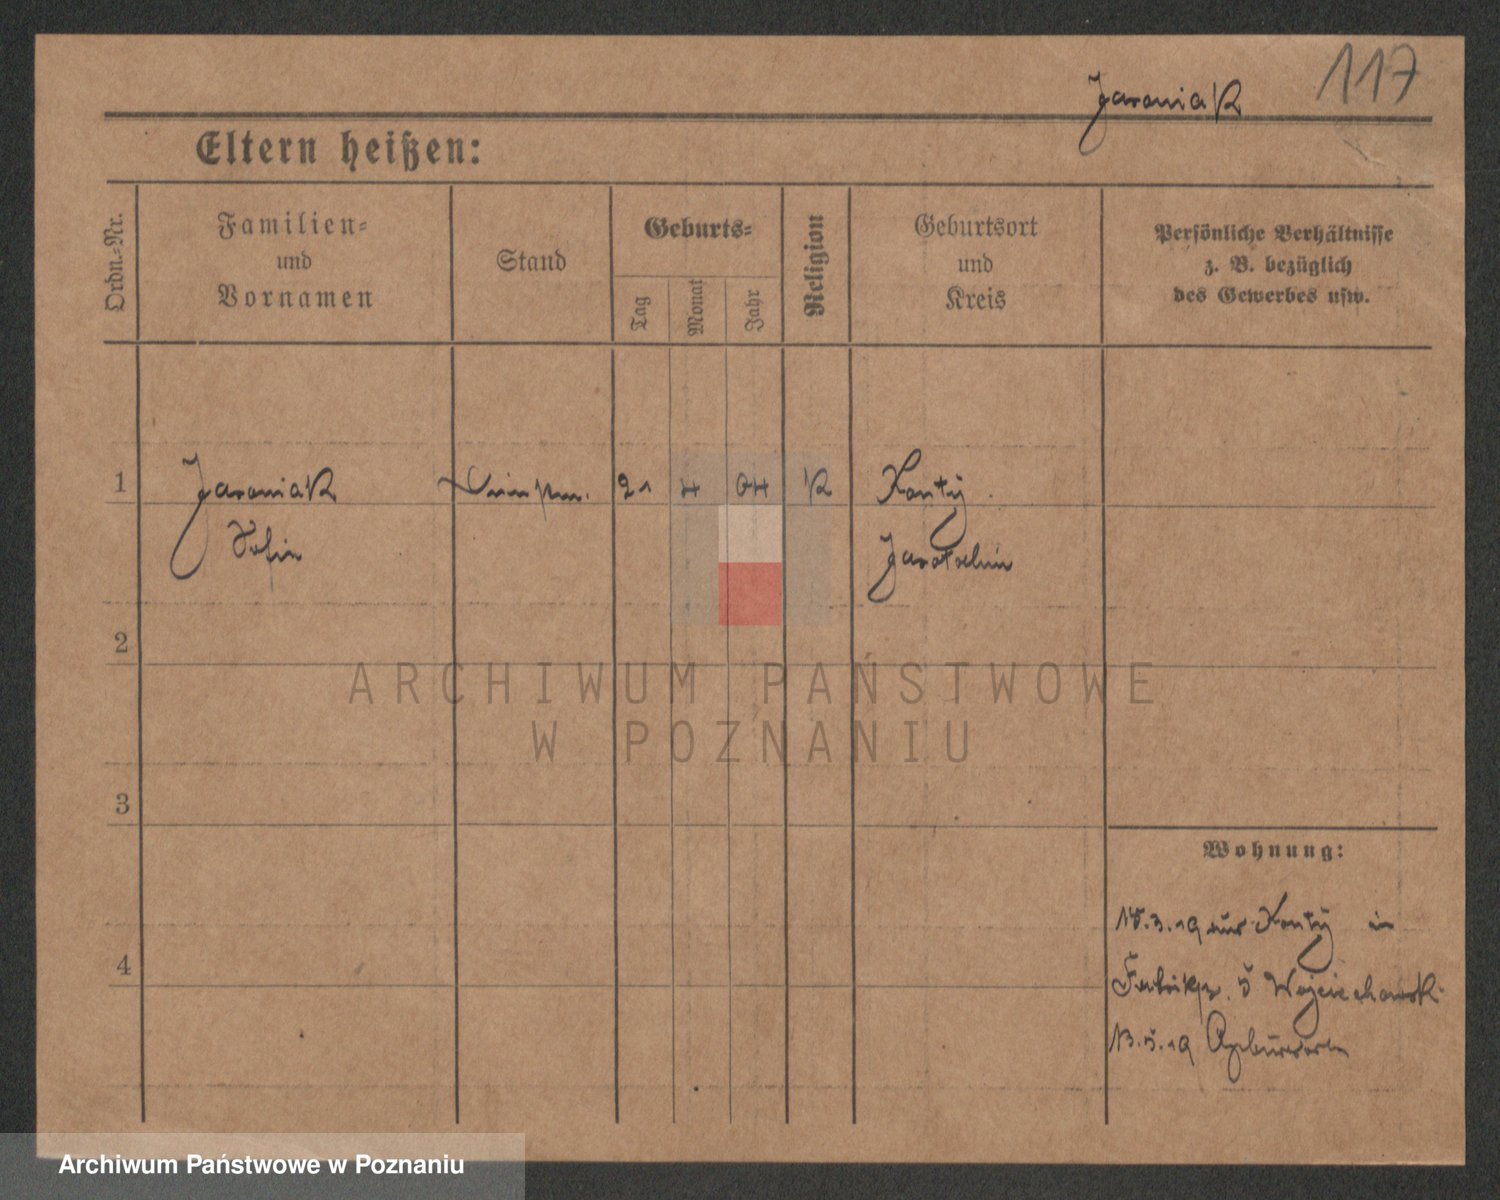 117
Jaroniak
Eltern heißen:
Ordn.=Nr.
Familien=
und
Vornamen
Stand
Geburts=
Tag
Monat
Jahr
Religion
Geburtsort
und
Kreis
Persönliche Verhältnisse
z. B. bezüglich
des Gewerbes usw.
1
Jaroniak
Sofie
21
4
04
K
Konty
Jarotschin
2
3
4
Wohnung:
18.3.19 aus Konty in
5 Wojciechowski
13.5.19
ARCHIWUM PAŃSTWOWE
W POZNANIU
Archiwum Państwowe w Poznaniu